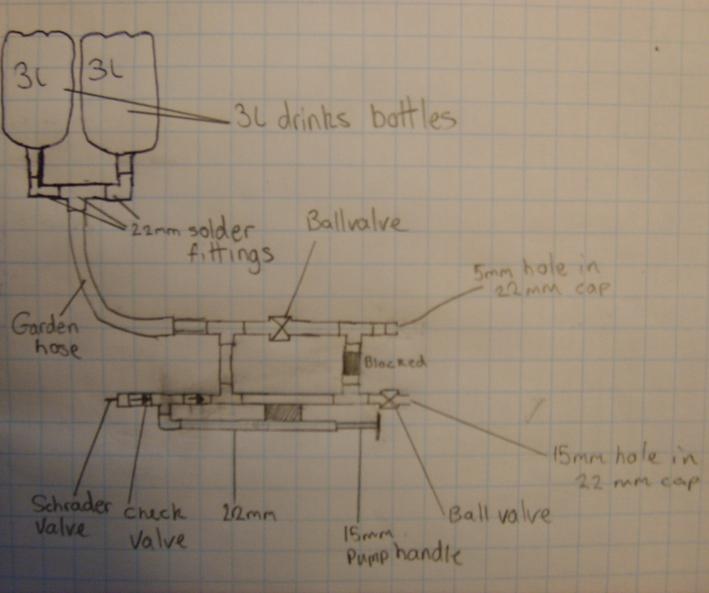 3L
3L
3L drinks bottles
22mm solder
fittings
Ballvalve
5mm hole in
22mm cap
Garden
hose
Blocked
15mm hole in
22 mm cap
Schrader
Valve
check
valve
22mm
15mm
Pump handle
Ball valve